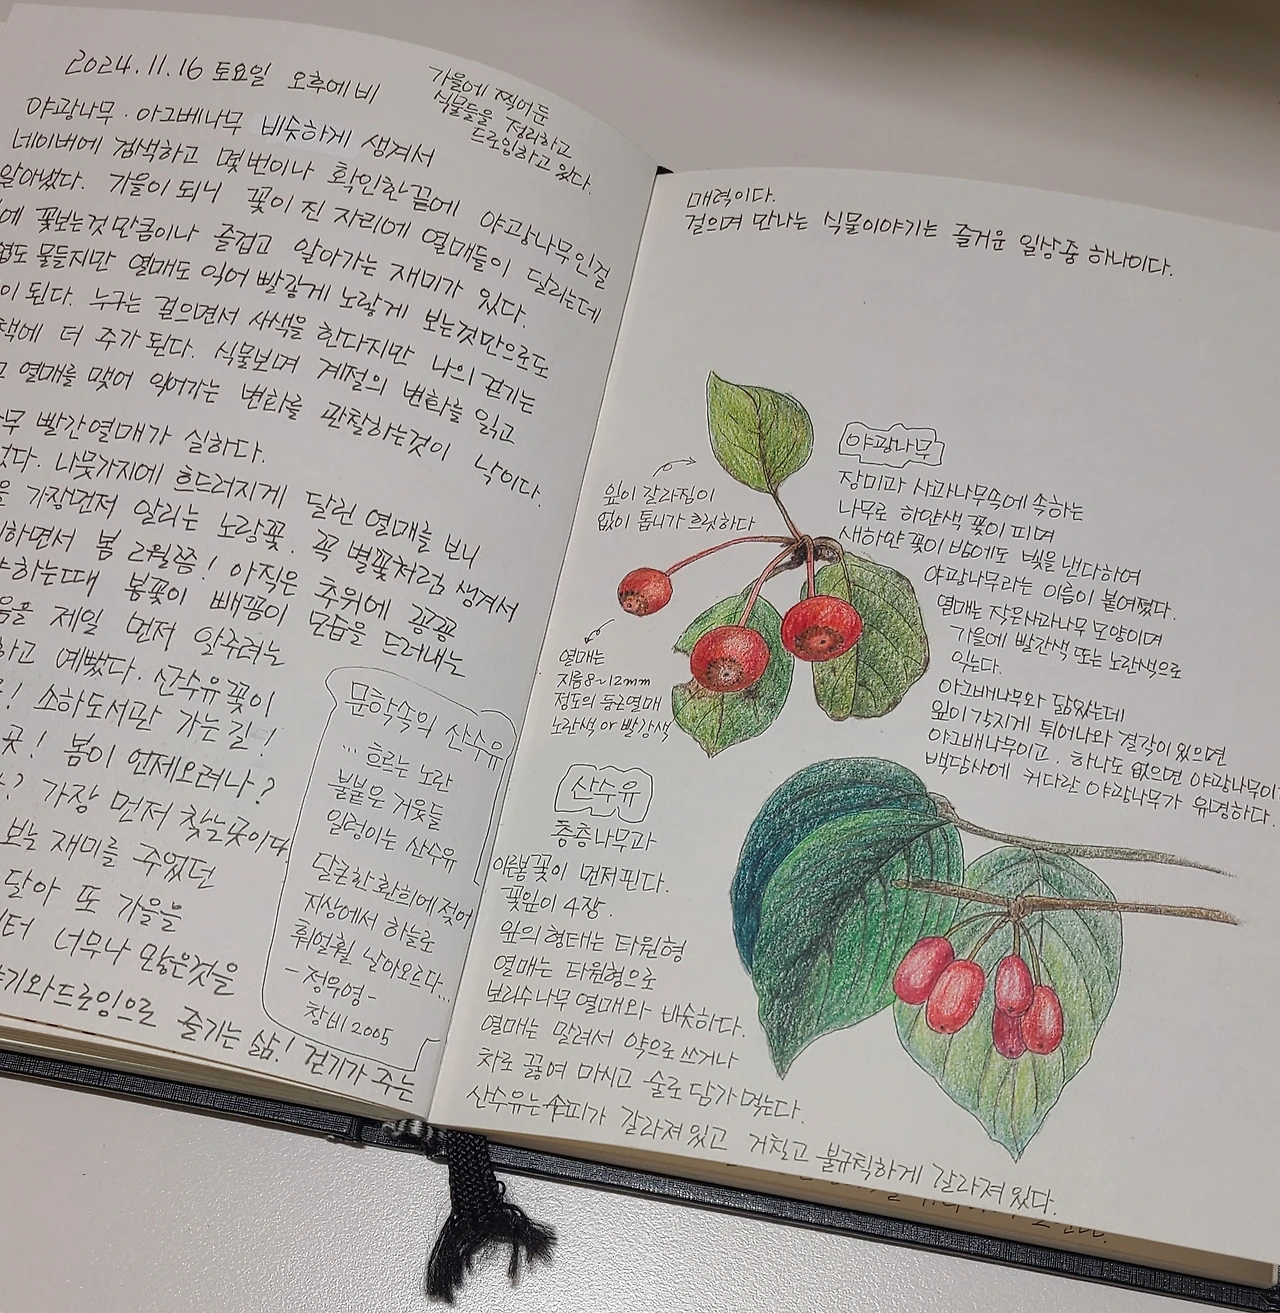 2024.11.16 토요일 오후에 비
가을에 찍어둔
식물들을 정리하고
드로잉하고 있다.
야광나무 · 아그베나무 비슷하게 생겨서
네이버에 검색하고 몇번이나 확인한끝에 야광나무인걸
알아냈다. 가을이 되니 꽃이 진 자리에 열매들이 달리는데
에 꽃보는것만큼이나 즐겁고 알아가는 재미가 있다.
엽도 물들지만 열매도 익어 빨갛게 노랗게 보는것만으로도
이 된다. 누구는 걸으면서 사색을 한다지만 나의 걷기는
책에 더 주가 된다. 식물보며 계절의 변화를 읽고
고 열매를 맺어 익어가는 변화를 관찰하는것이 낙이다.
나무 빨간열매가 실하다.
었다. 나뭇가지에 흐드러지게 달린 열매를 보니
을 가장먼저 알리는 노랑꽃. 꼭 별꽃처럼 생겨서
하면서 봄 2월쯤! 아직은 추위에 꽁꽁
하는때 봄꽃이 빼꼼이 모습을 드러내는
음을 제일 먼저 알주려는
하고 예뻤다. 산수유꽃이
! 소하도서관 가는길!
곳! 봄이 언제오려나?
? 가장 먼저 찾는곳이다.
보는 재미를 주었던
달아 또 가을을
터 너무나 많은것을
기와드로잉으로 즐기는 삶! 걷기가 주는
문학속의 산수유
... 흐르는 노란
불붙은 거웃들
일렁이는 산수유
달콤한 환희에 젖어
지상에서 하늘로
훠얼훨 날아오르다...
- 정우영 -
창비 2005
매력이다.
걸으며 만나는 식물이야기는 즐거운 일상중 하나이다.
야광나무
장미과 사과나무속에 속하는
나무로 하얀색 꽃이 피며
새하얀 꽃이 밤에도 빛을 낸다하여
야광나무라는 이름이 붙여졌다.
열매는 작은사과나무 모양이며
가을에 빨간색 또는 노란색으로
익는다.
아그배나무와 닮았는데
잎이 각지게 튀어나와 결각이 있으면
아그배나무이고. 하나도 없으면 야광나무이
백담사에 커다란 야광나무가 유명하다.
잎이 갈라짐이
없이 톱니가 흐릿하다
열매는
지름8~12mm
정도의 둥근열매
노란색 or 빨강색
산수유
층층나무과
이른봄꽃이 먼저핀다.
꽃잎이 4장.
잎의 형태는 타원형
열매는 타원형으로
보리수나무 열매와 비슷하다.
열매는 말려서 약으로 쓰거나
차로 끓여 마시고 술로 담가먹는다.
산수유는 수피가 갈라져있고 거칠고 불규칙하게 갈라져있다.